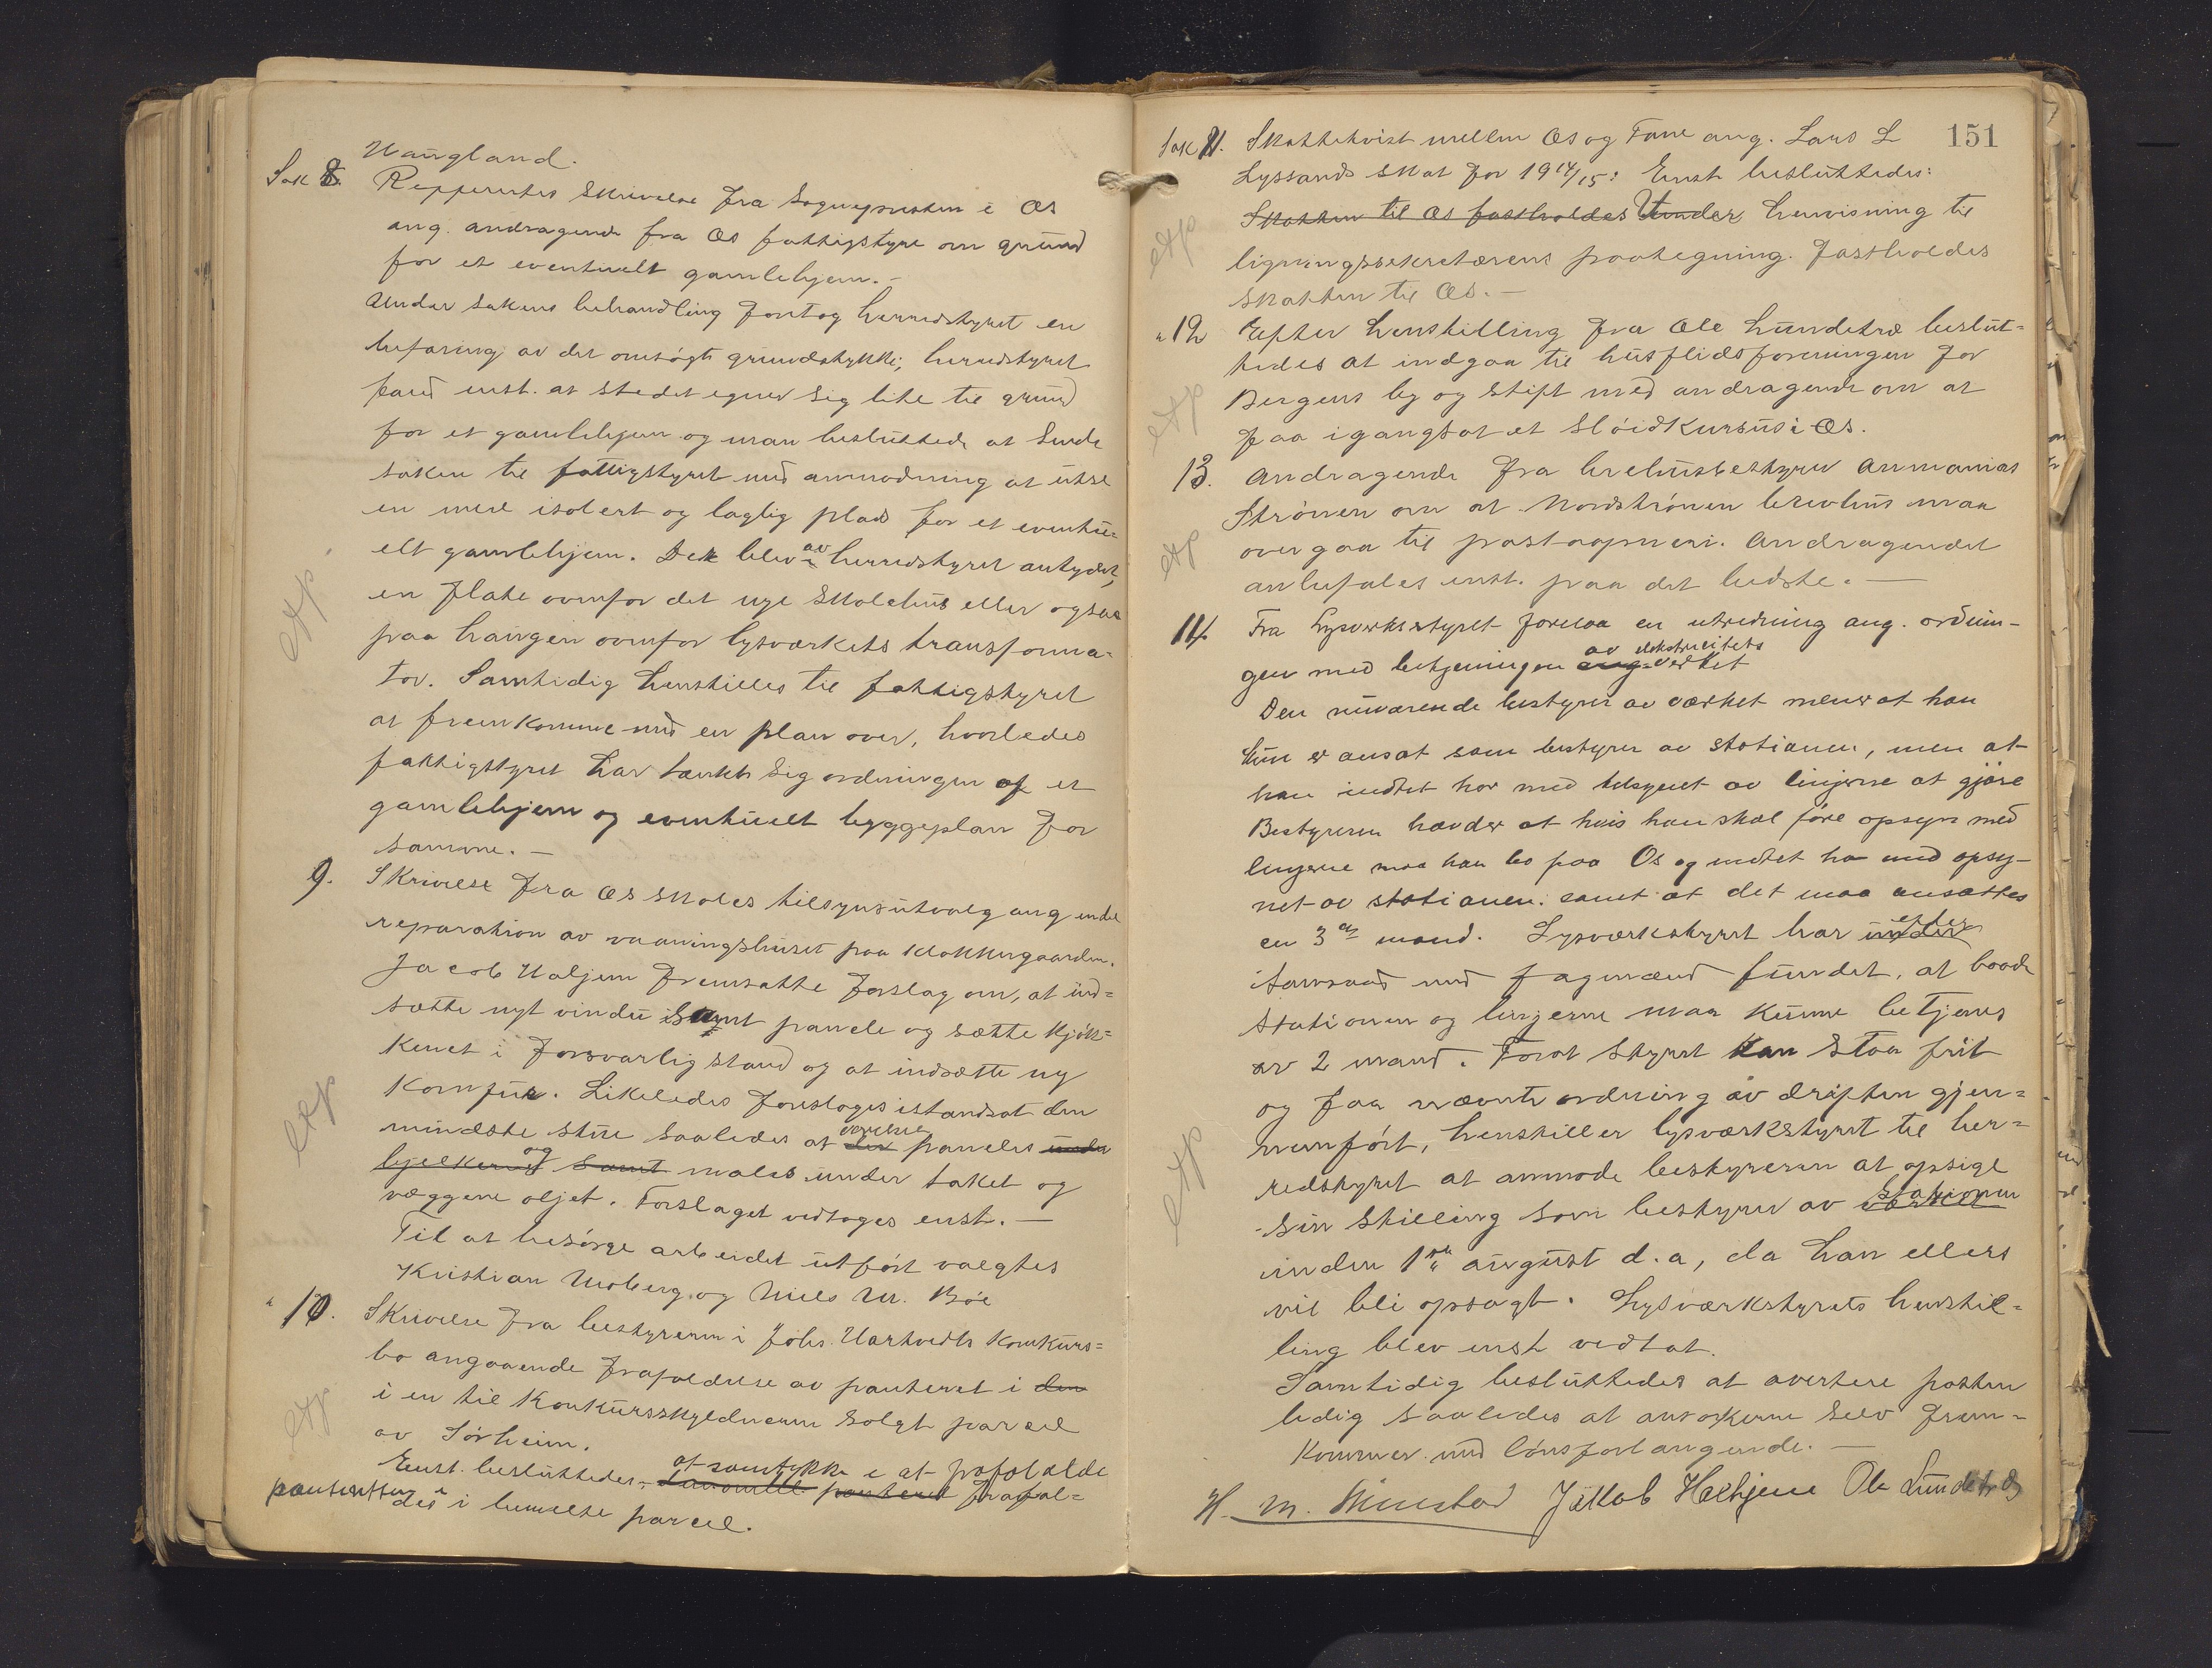 Haugland.
Sak 8. Refferertes skrivelse fra sognepresten i Os
ang. andragende fra Os fattigstyre om grund
for et eventuelt gamlehjem. –
Under sakens behandling foretog herredstyret en
befaring av det omsøgte grundstykke; herredstyret
fand enst. at stedet egner sig lite til grund
for et gamlehjem og man besluttede at sende
saken til fattigstyret med anmodning at utse
en mere isolert og laglig plads for et eventu=
elt gamlehjem. Det blev av herredstyret antydet,
en flate ovenfor det nye skolehus eller ogsaa
paa haugen ovenfor lysværkets transforma=
tor. Samtidig henstilles til fattigstyret
at fremkomme med en plan over, hvorledes
fattigstyret har tænkt sig ordningen af et
gamlehjem og eventuelt byggeplan for
samme. –
9. Skrivelse fra Os skoles tilsynsutvalg ang endel
reparation av vaaningshuset paa Klokkergaarden.
Jacob Haljem fremsatte forslag om, at ind=
sætte nyt vindu samt panele og sætte kjøk=
kenet i forsvarlig stand og at indsætte ny
komfur. Likeledes foreslages istandsat den
mindste stue saaledes at den værelse paneles under
bjelkerne og samt males under taket og
væggene oljet. Forslaget vedtages enst. –
Til at besørge arbeidet utført valgtes
Kristian Moberg og Nils M. Bøe
" 10. Skrivelse fra bestyreren i Johs. Hartvedts konkurs=
bo angaaende frafaldelse av panteret i den
i en til konkursskyldneren solgt parcel
av Sørheim.
Enst. besluttedes: at samtykke i at frafalde
panteretten i panteret frafal=
des i kumelte parcel.
151
Sak 11. Skattetvist mellem Os og Fane ang. Lars L
Lyssands skat for 1914/15: Enst besluttedes:
Skatten til Os fastholdes Under henvisning til
ligningssekretærens paategning. fastholdes
skatten til Os. –
" 12 Efter henstilling fra Ole Lundetræ beslut=
tedes at indgaa til husflidsforeningen for
Bergens by og stift med andragende om at
faa igangsat et sløidkursus i Os.
13. Andragende fra brevhusbestyrer Annanias
Strønen om at Nordstrønen brevhus maa
overgaa til postaapneri. Andragendet
anbefales enst. paa det bedste. –
14 Fra Lysverksstyret forelaa en utredning ang. ordnin-
gen med betjeningen ang av elektricitets verket
Den nuværende bestyrer av værket mener at han
kun er ansat som bestyrer av stationen, men at
han indtet har med tilsynet av linjerne at gjøre
Bestyreren hævder at hvis han skal føre opsyn med
linjerne maa han bo paa Os og indtet ha med opsy-
net av stationen. samt at det maa ansættes
en 3die mand. Lysværkstyret har under efter
samraad med fagmænd fundet, at baade
stationen og linjerne maa kunne betjenes
av 2 mand. Forat styret kan staa frit
og faa nævnte ordning av driften gjen=
nemført, henstiller lysværkstyret til her=
redstyret at anmode bestyreren at opsige
sin stilling som bestyrer av værket stationen
inden 1ste august d.a, da han ellers
vil bli opsagt. Lysværkstyrets henstil=
ling blev enst vedtat.
Samtidig besluttedes at avertere posten
ledig saaledes at ansøkerne selv frem=
kommer med lønsforlangende. –
H. M. Mustad Jakob Hathjem Ole Lundetræ